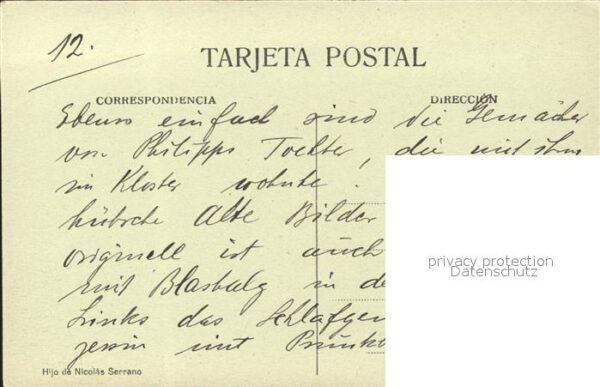 12.
TARJETA POSTAL
CORRESPONDENCIA
DIRECCIÓN
Ebenso einfach sind die Gemächer
von Philipps Tochter, die mit ihm
im Kloster wohnte.
hübsche alte Bilder
originell ist auch
mit Blasbalg in de
Links das Schlafgem
zessin mit Prunkb
privacy protection
Datenschutz
Hijo de Nicolás Serrano